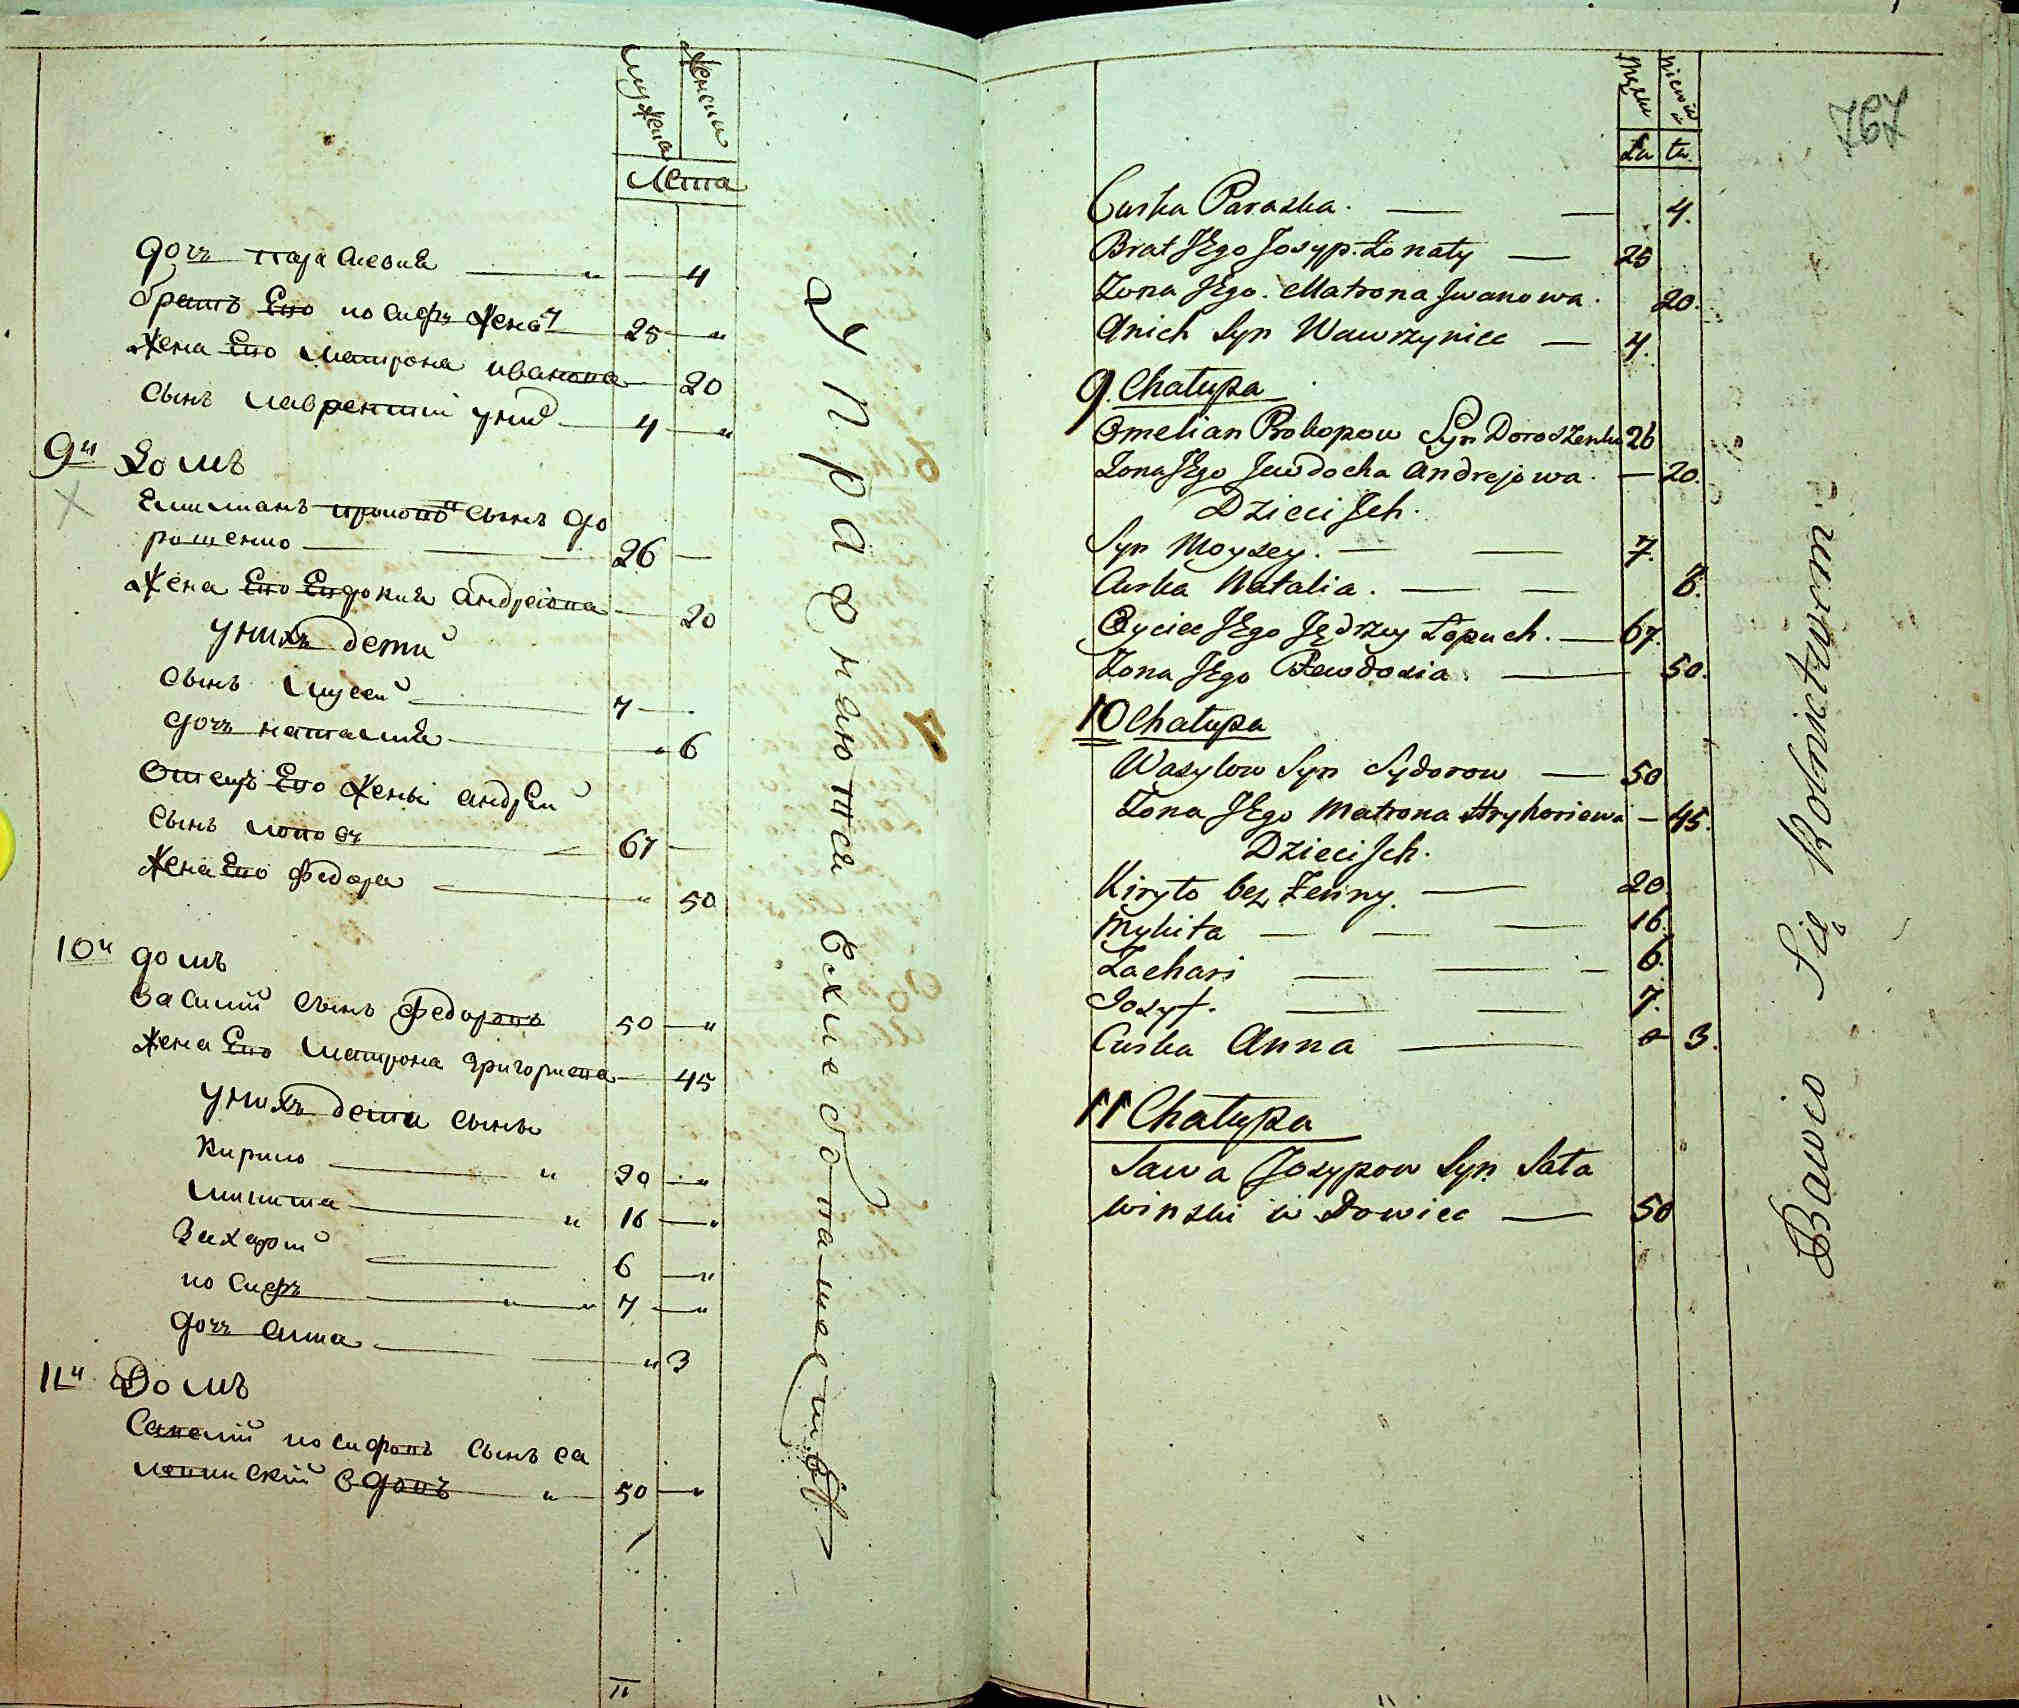 мужеска
женски
Лета
дочъ параскевия — " — 4
братъ Его иосифъ женат 25 — "
жена Его матрона иванова — 20
сынъ лаврентий у них — 4 — "
9й Домъ
Емилианъ прокопов сынъ до
рошенко — — — 26 —
жена Его Евдокия андреева — 20
у нихъ дети
сынъ мусей — 7 —
дочъ наталия — " 6
отецъ Его жены андрей
сынъ лопох — 67 —
жена Его федора — " 50
10й домъ
василий сынъ федоровъ 50 — "
жена Его матрона григориева — 45
у нихъ дети сыны
кирило — " 20 — "
микита — " 16 — "
Захарий — 6 — "
иосифъ — " — " 7 — "
дочъ анна — — " 3
11й Домъ
Савелий иосифовъ сынъ са
ловинский вдовъ " 50 — "
Упражняются в хлебопашестве
767
Męzka
niewia
La
ta.
Curka Paraska. — — 4.
Brat JEgo Josyp. Żonaty — 25
Żona JEgo. Matrona Jwanowa. 20.
Ynich Syn Wawrzyniec — 4.
9. Chałupa
Omelian Prokopow Syn Doroszenko 26
Żona JEgo Jewdocha Andrejowa. — 20.
Dzieci Jch.
Syn Moysey. — — 7.
Curka Natalia. — — 6.
Oyciec JEgo Jędrzey Łopuch. — 67.
Żona JEgo Fewdosia. — 50.
10 Chałupa
Wasylow Syn Sydorow — 50
Żona JEgo Matrona Hryhoriewa — 45.
Dzieci Jch.
Kiryło bez Żenny. — 20.
Mykita — — — 16.
Zachari — — — 6.
Jozyf. — — 7.
Curka Anna — 3.
11 Chałupa
Sawa Josypow Syn Sała
winski w Dowiec — 50
Bawio Się Rolnictwem.